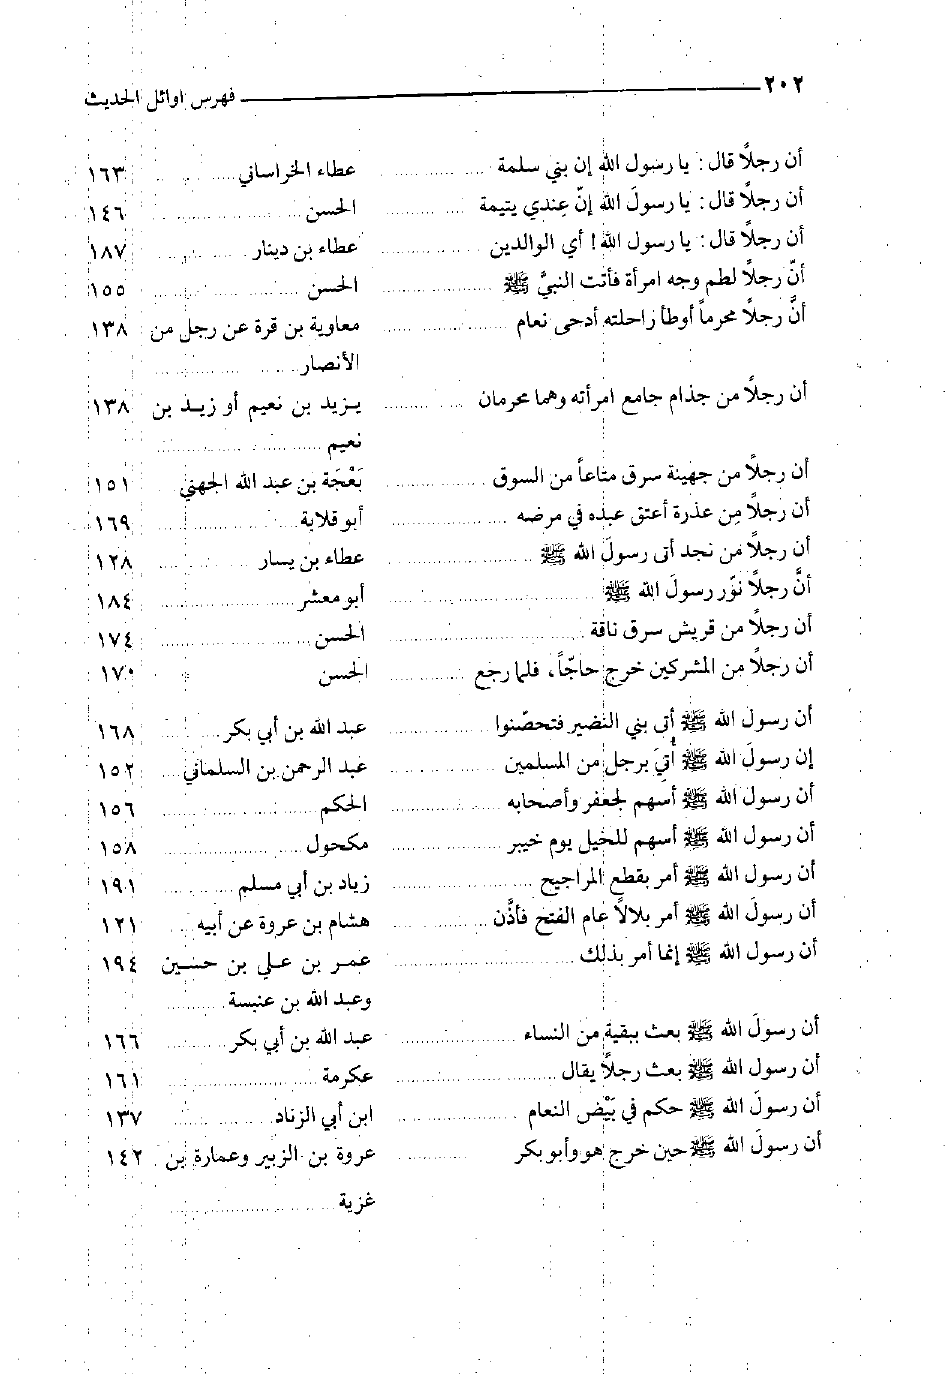 ٢٠٢ فهرس اوائل الحديث
أن رجلاً قال: يا رسول الله إن بني سلمة عطاء الخراساني ١٦٣
أن رجلاً قال: يا رسولَ الله إنّ عِندي يتيمة الحسن ١٤٦
أن رجلاً قال: يا رسول الله! أي الوالدين عطاء بن دينار ١٨٧
أنّ رجلاً لطم وجه امرأة فأتت النبيَّ ﷺ الحسن ١٥٥
أنَّ رجلاً محرماً أوطأ راحلته أدحى نعام معاوية بن قرة عن رجل من ١٣٨
الأنصار
أن رجلاً من جذام جامع امرأته وهما محرمان يزيد بن نعيم أو زيد بن ١٣٨
نعيم
أن رجلاً من جهينة سرق متاعاً من السوق بَعْجَة بن عبد الله الجهني ١٥١
أن رجلاً مِن عذرة أعتق عبده في مرضه أبو قلابة ١٦٩
أن رجلاً من نجد أتى رسولَ الله ﷺ عطاء بن يسار ١٢٨
أنَّ رجلاً نوّر رسولَ الله ﷺ أبو معشر ١٨٤
أن رجلاً من قريش سرق ناقة الحسن ١٧٤
أن رجلاً من المشركين خرج حاجّاً، فلما رجع الحسن ١٧٠
أن رسولَ الله ﷺ أتى بني النضير فتحصّنوا عبد الله بن أبي بكر ١٦٨
إن رسولَ الله ﷺ أُتيَ برجل من المسلمين عبد الرحمن بن السلماني ١٥٢
أن رسول الله ﷺ أسهم لجعفر وأصحابه الحكم ١٥٦
أن رسول الله ﷺ أسهم للخيل يوم خيبر مكحول ١٥٨
أن رسول الله ﷺ أمر بقطع المراجيح زياد بن أبي مسلم ١٩١
أن رسولَ الله ﷺ أمر بلالاً عام الفتح فأذَّن هشام بن عروة عن أبيه ١٢١
أن رسول الله ﷺ إنما أمر بذلك عمر بن علي بن حسين ١٩٤
وعبد الله بن عنبسة
أن رسولَ الله ﷺ بعث ببقية من النساء عبد الله بن أبي بكر ١٦٦
أن رسول الله ﷺ بعث رجلاً يقال عكرمة ١٦١
أن رسولَ الله ﷺ حكم في بَيْض النعام ابن أبي الزناد ١٣٧
أن رسولَ الله ﷺ حين خرج هو وأبو بكر عروة بن الزبير وعمارة بن ١٤٢
غزية